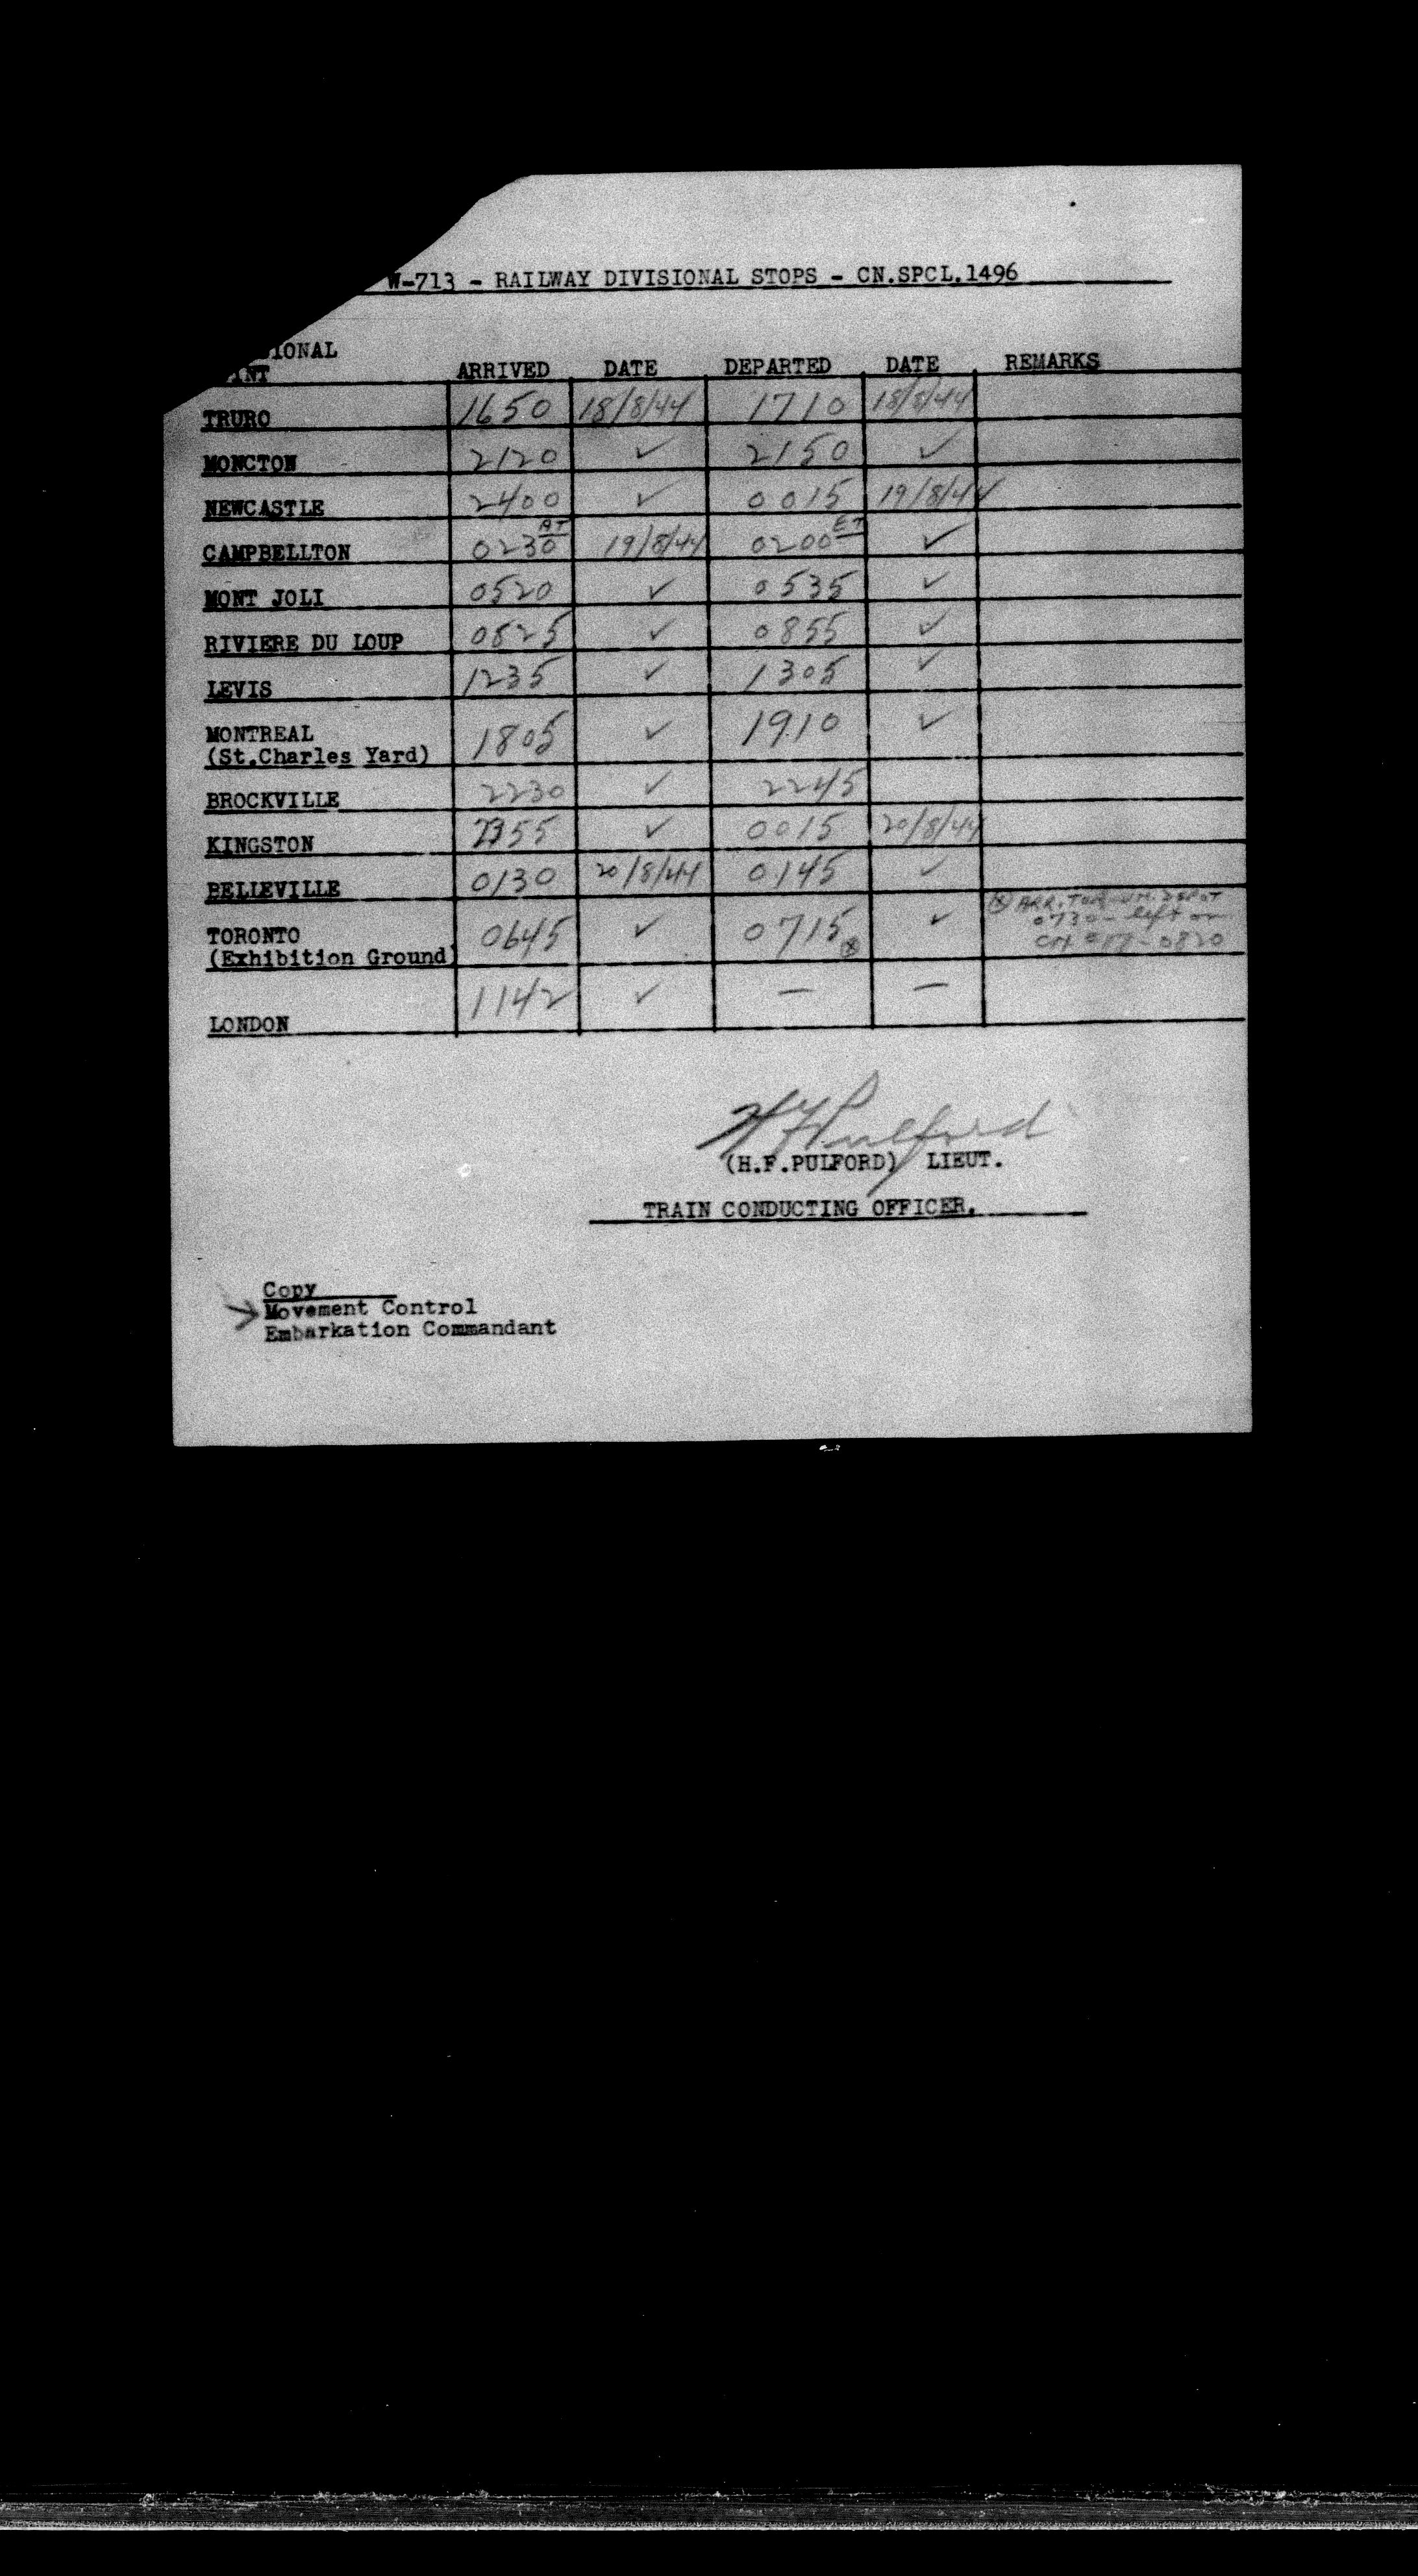 W-713 - RAILWAY DIVISIONAL STOPS - CN.SPCL.1496
IONAL
INT ARRIVED DATE DEPARTED DATE REMARKS
TRURO 1650 18/8/44 1710 18/8/44
MONCTON 2120 ✓ 2150 ✓
NEWCASTLE 2400 ✓ 0015 19/8/44
CAMPBELLTON 0230 AT 19/8/44 0200 ET ✓
MONT JOLI 0520 ✓ 0535 ✓
RIVIERE DU LOUP 0825 ✓ 0855 ✓
LEVIS 1235 ✓ 1305 ✓
MONTREAL
(St.Charles Yard) 1805 ✓ 1910 ✓
BROCKVILLE 2230 ✓ 2245
KINGSTON 2355 ✓ 0015 20/8/44
BELLEVILLE 0130 20/8/44 0145 ✓
TORONTO
(Exhibition Ground) 0645 ✓ 0715 ⊗ ✓ ⊗ ARR. TOR. UN. DEPOT
0730 - left on
CN #17 0820
LONDON 1142 ✓ — —
H F Pulford
(H.F.PULFORD) LIEUT.
TRAIN CONDUCTING OFFICER.
Copy
Movement Control
Embarkation Commandant